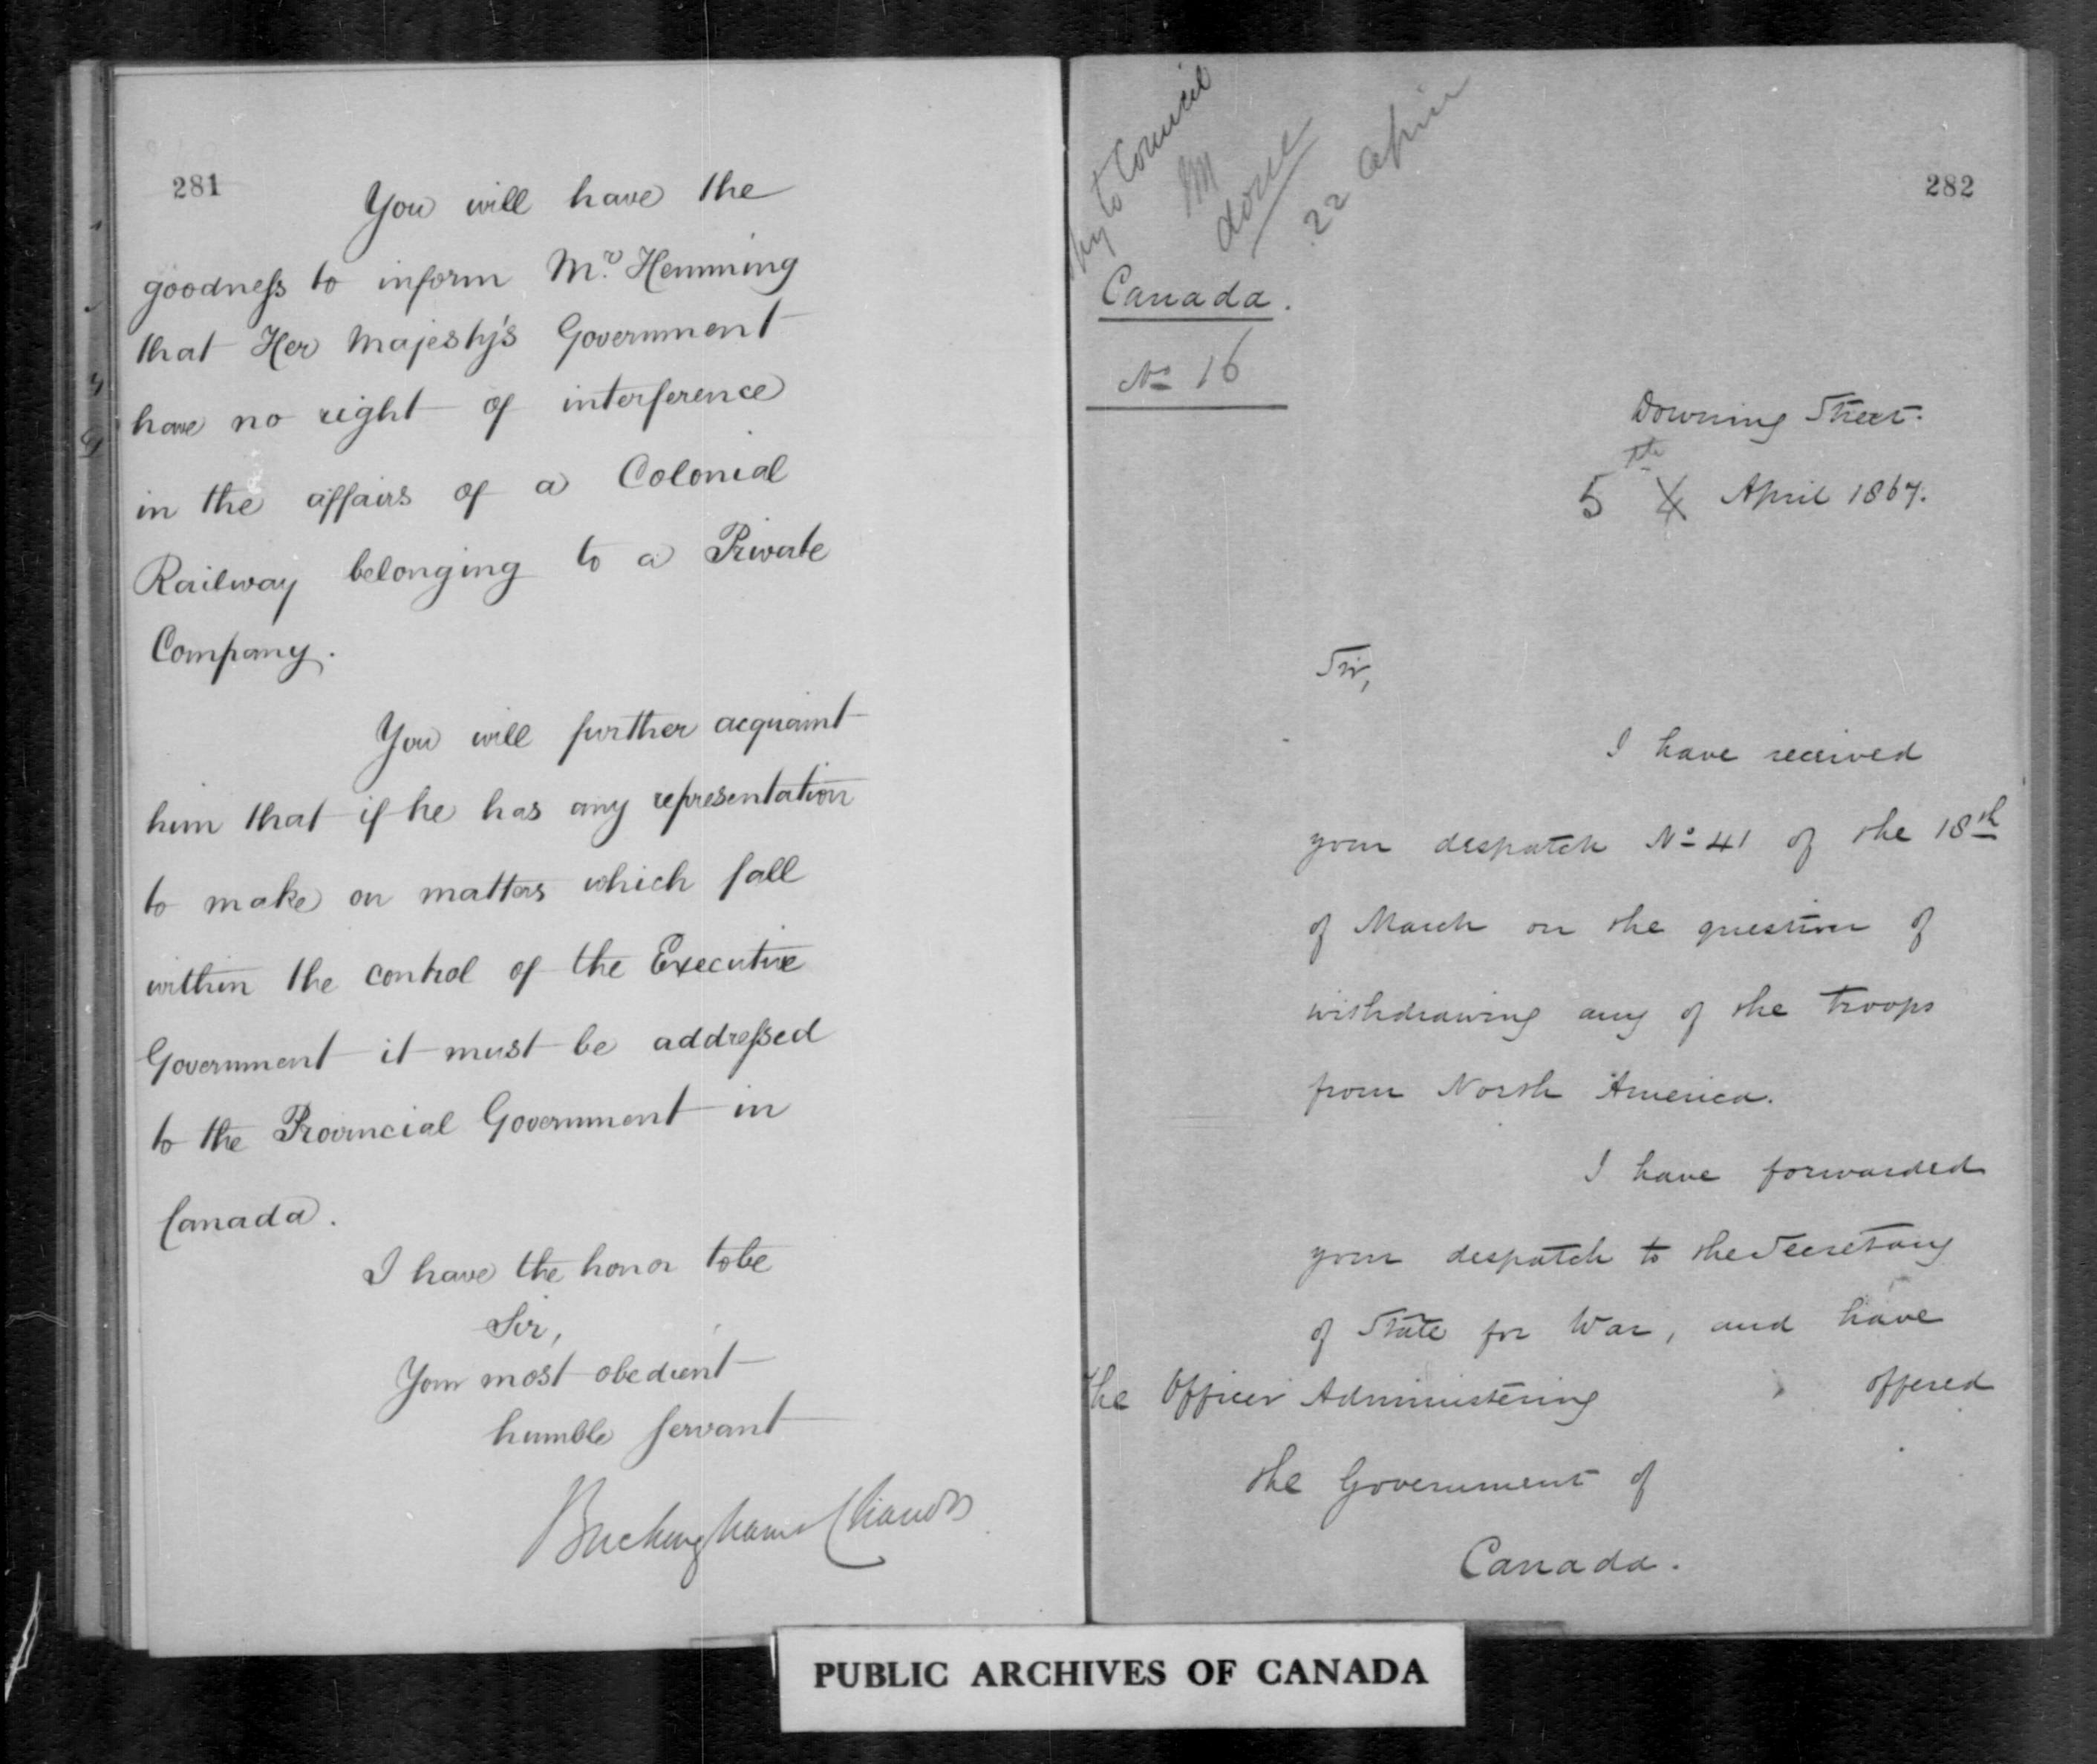 281
You will have the
goodness to inform Mr. Hemming
that Her Majesty's Government
have no right of interference
in the affairs of a Colonial
Railway belonging to a Private
Company.
You will further acquaint
him that if he has any representation
to make on matters which fall
within the control of the Executive
Government it must be addressed
to the Provincial Government in
Canada.
I have the honor to be
Sir,
Your most obedient
humble servant
Buckingham Chandos
282
to Council
M
done
22 April
Canada.
No 16
Downing Street.
5 th 4 April 1867.
Sir,
I have received
your despatch No 41 of the 18th
of March on the question of
withdrawing any of the troops
from North America.
I have forwarded
your despatch to the Secretary
of State for War, and have
offered
The Officer Administering
the Government of
Canada.
PUBLIC ARCHIVES OF CANADA